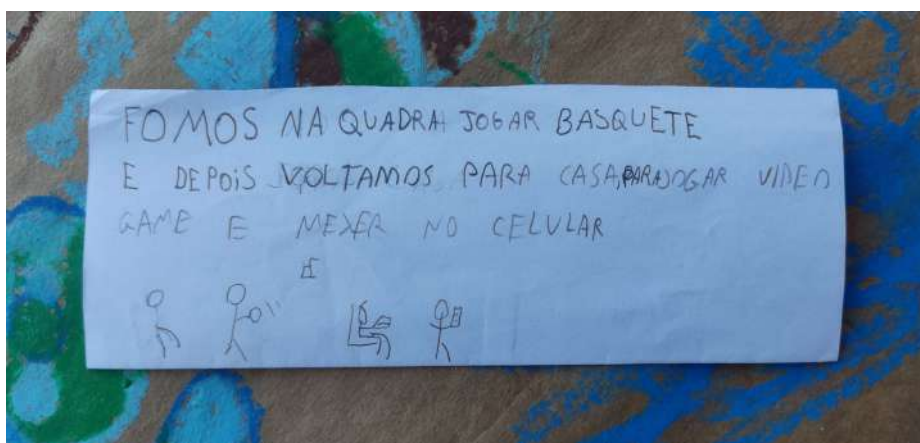 FOMOS NA QUADRA JOGAR BASQUETE
E DEPOIS VOLTAMOS PARA CASA, PARA JOGAR VIDEO
GAME E MEXER NO CELULAR
E